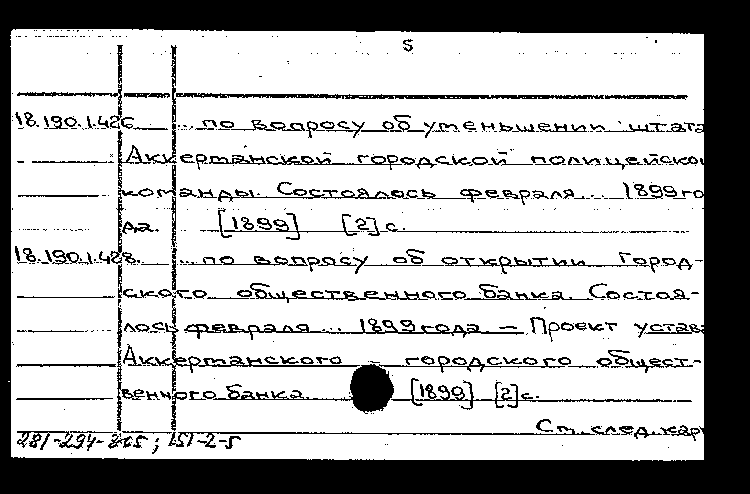 5
18.190.1.426. ...по вопросу об уменьшении штата
Аккерманской городской полицейско
команды. Состоялось февраля... 1899 го
да. [1899] [2] с.
18.190.1.428. ...по вопросу об открытии город-
ского общественного банка. Состоя-
лось февраля... 1899 года – Проект устава
Аккерманского городского общест-
венного банка. [1899] [2] с.
См. след. кар
281-294- ; 151-2-5